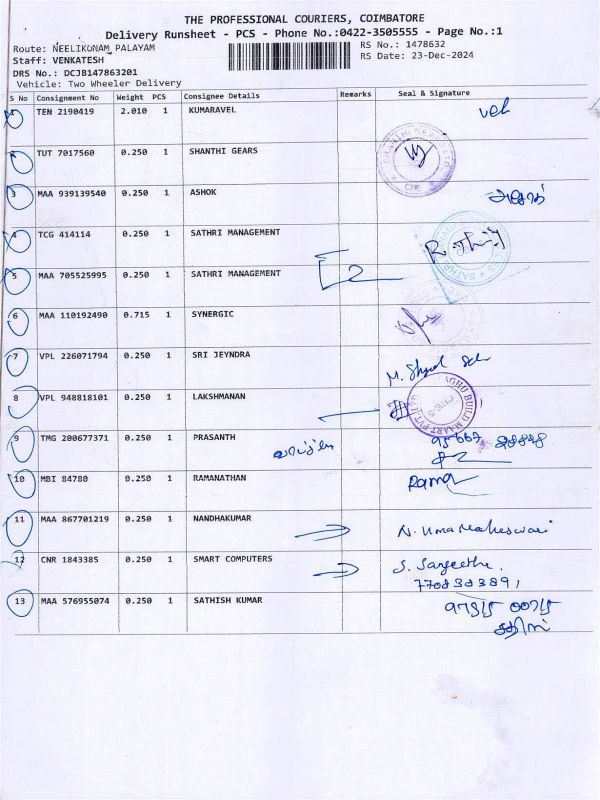 THE PROFESSIONAL COURIERS, COIMBATORE
Delivery Runsheet - PCS - Phone No.:0422-3505555 - Page No.:1
Route: NEELIKONAM PALAYAM
RS No.: 1478632
Staff: VENKATESH
RS Date: 23-Dec-2024
DRS No.: DCJB147863201
Vehicle: Two Wheeler Delivery
S No Consignment No Weight PCS Consignee Details Remarks Seal & Signature
1 TEN 2190419 2.010 1 KUMARAVEL
2 TUT 7017560 0.250 1 SHANTHI GEARS
3 MAA 939139540 0.250 1 ASHOK
4 TCG 414114 0.250 1 SATHRI MANAGEMENT
5 MAA 705525995 0.250 1 SATHRI MANAGEMENT 2
6 MAA 110192490 0.715 1 SYNERGIC
7 VPL 226071794 0.250 1 SRI JEYNDRA
8 VPL 948818101 0.250 1 LAKSHMANAN
9 TMG 200677371 0.250 1 PRASANTH
10 MBI 84780 0.250 1 RAMANATHAN Rama
11 MAA 867701219 0.250 1 NANDHAKUMAR N. Uma Maheswari
12 CNR 1843385 0.250 1 SMART COMPUTERS S. Sangeetha.
7708383891
13 MAA 576955074 0.250 1 SATHISH KUMAR